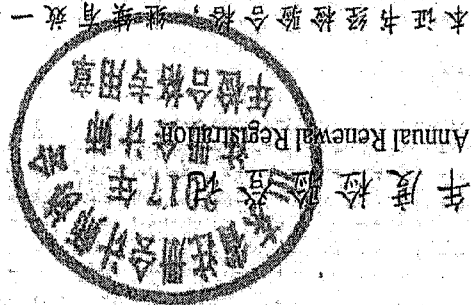 年度检验登记
Annual Renewal Registration
本证书经检验合格,继续有效一
省注册会计师协会
2017年
注册会计师
年检合格专用章